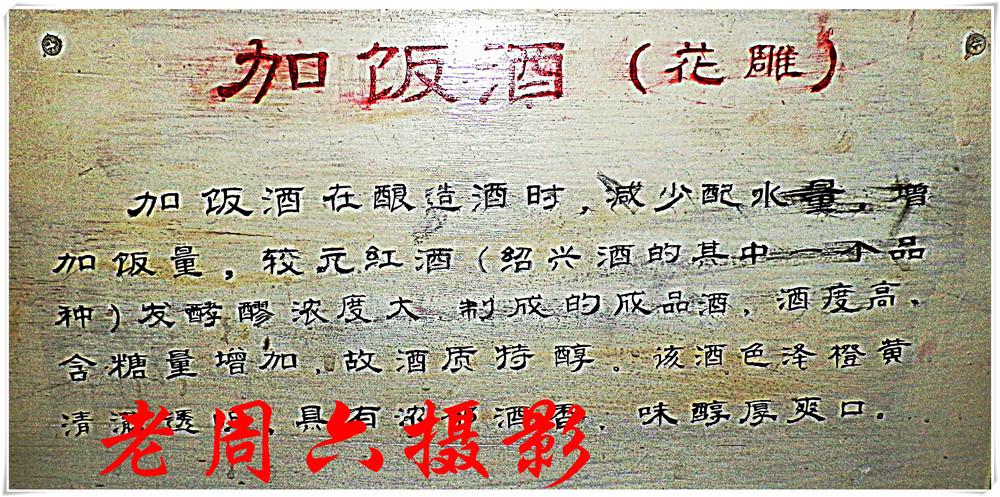 加饭酒（花雕）
加饭酒在酿造酒时，减少配水量，增
加饭量，较元红酒（绍兴酒的其中一个品
种）发酵醪浓度大 制成的成品酒，酒度高、
含糖量增加，故酒质特醇。该酒色泽橙黄
清 透 、具有浓 酒香，味醇厚爽口。
老周六摄影